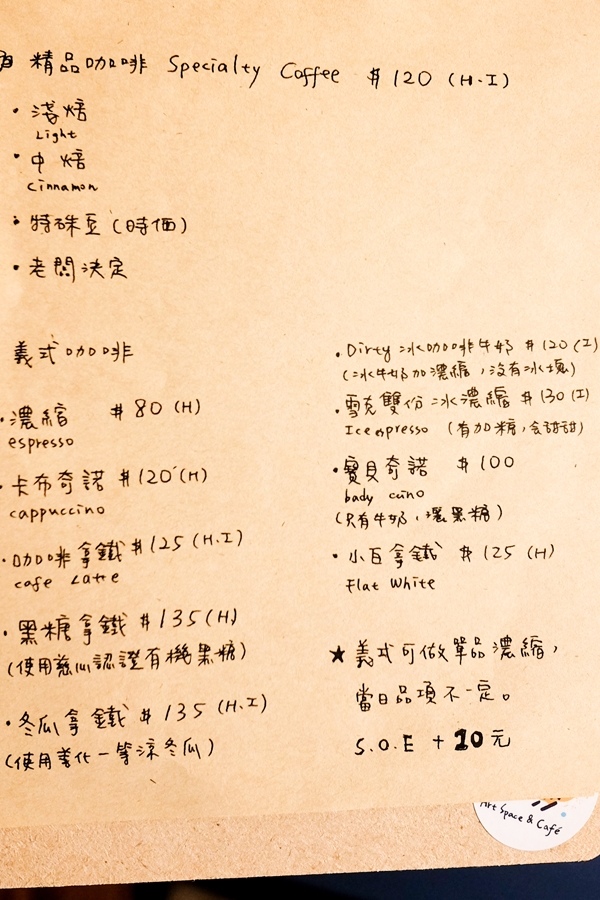 精品咖啡 Specialty Coffee $120 (H.I)
・淺焙
Light
・中焙
cinnamon
・特殊豆 (時価)
・老闆決定
義式咖啡
・濃縮 $80 (H)
espresso
・卡布奇諾 $120 (H)
cappuccino
・咖啡拿鐵 $125 (H.I)
cafe Latte
・黑糖拿鐵 $135 (H)
(使用慈心認證有機黑糖)
・冬瓜拿鐵 $135 (H.I)
(使用善化一等涼冬瓜)
・Dirty 冰咖啡牛奶 $120 (I)
(冰牛奶加濃縮,沒有冰塊)
・雪克雙份冰濃縮 $130 (I)
Ice espresso (有加糖,会甜甜)
・寶貝奇諾 $100
bady cino
(只有牛奶,黑糖)
・小白拿鐵 $125 (H)
Flat White
★ 義式可做單品濃縮,
當日品項不一定。
S.O.E + 20 元
Art Space & Café